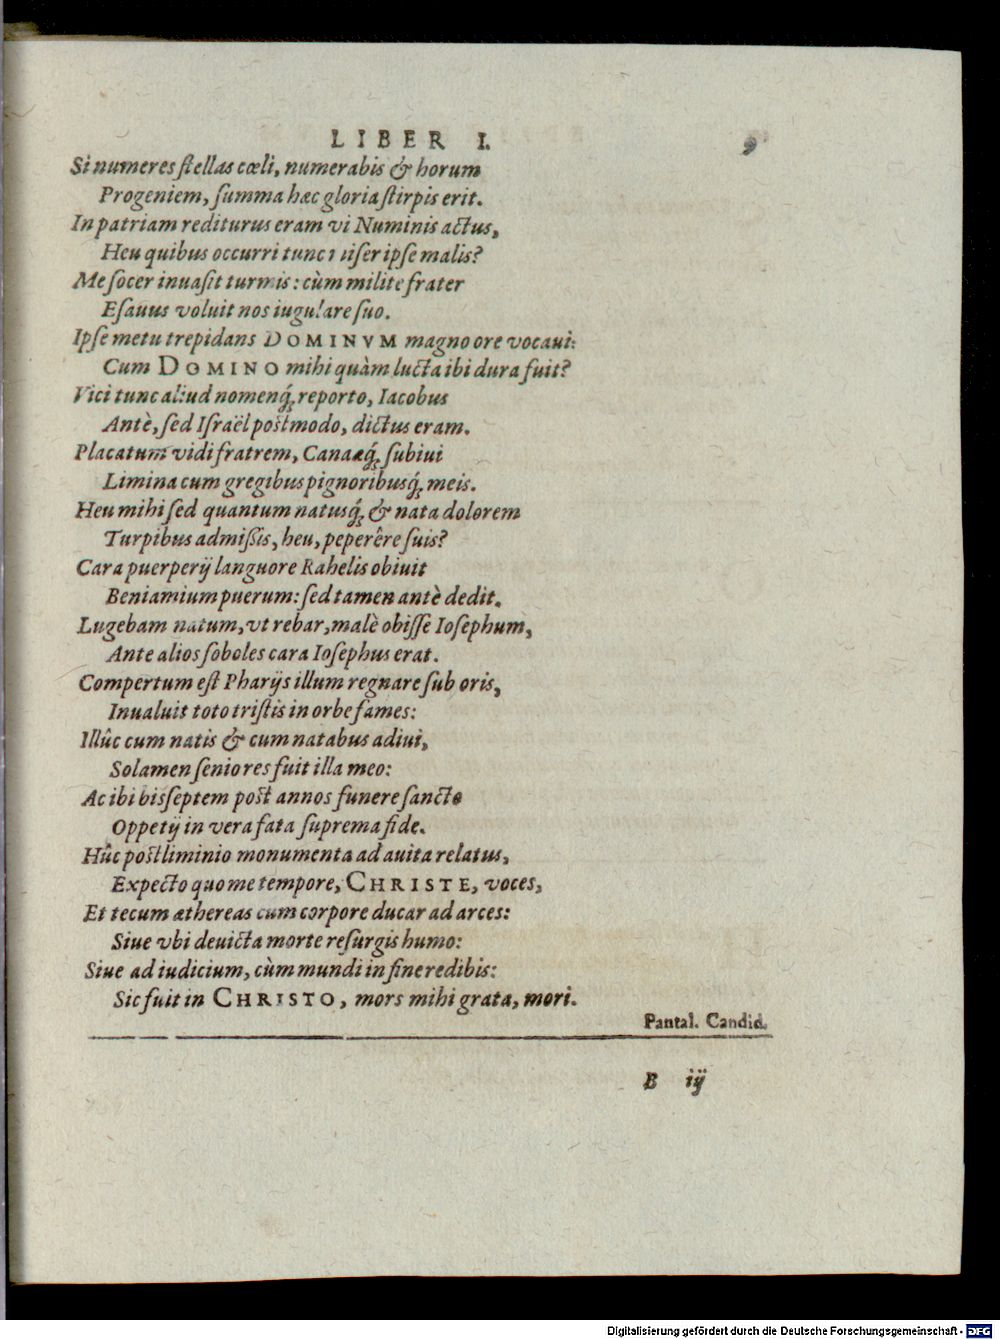 LIBER I. 9
Si numeres ſtellas cœli, numerabis & horum
Progeniem, ſumma hæc gloria ſtirpis erit.
In patriam rediturus eram vi Numinis actus,
Heu quibus occurri tunc miſer ipſe malis?
Me ſocer inuaſit turmis: cùm milite frater
Eſauus voluit nos iugulare ſuo.
Ipſe metu trepidans DOMINVM magno ore vocaui:
Cum DOMINO mihi quàm lucta ibi dura fuit?
Vici tunc aliud nomenq́; reporto, Iacobus
Antè, ſed Iſraël poſtmodo, dictus eram.
Placatum vidi fratrem, Canaæq́; ſubiui
Limina cum gregibus pignoribusq́; meis.
Heu mihi ſed quantum natusq́; & nata dolorem
Turpibus admiſſis, heu, peperêre ſuis?
Cara puerperij languore Rahelis obiuit
Beniamium puerum: ſed tamen antè dedit.
Lugebam natum, vt rebar, malè obiſſe Ioſephum,
Ante alios ſoboles cara Ioſephus erat.
Compertum eſt Pharijs illum regnare ſub oris,
Inualuit toto triſtis in orbe fames:
Illûc cum natis & cum natabus adiui,
Solamen ſenio res fuit illa meo:
Ac ibi bis ſeptem poſt annos funere ſancto
Oppetij in vera fata ſuprema fide.
Hûc poſtliminio monumenta ad auita relatus,
Expecto quo me tempore, CHRISTE, voces,
Et tecum æthereas cum corpore ducar ad arces:
Siue vbi deuicta morte reſurgis humo:
Siue ad iudicium, cùm mundi in fine redibis:
Sic fuit in CHRISTO, mors mihi grata, mori.
Pantal. Candid.
B iij
Digitalisierung gefördert durch die Deutsche Forschungsgemeinschaft - DFG